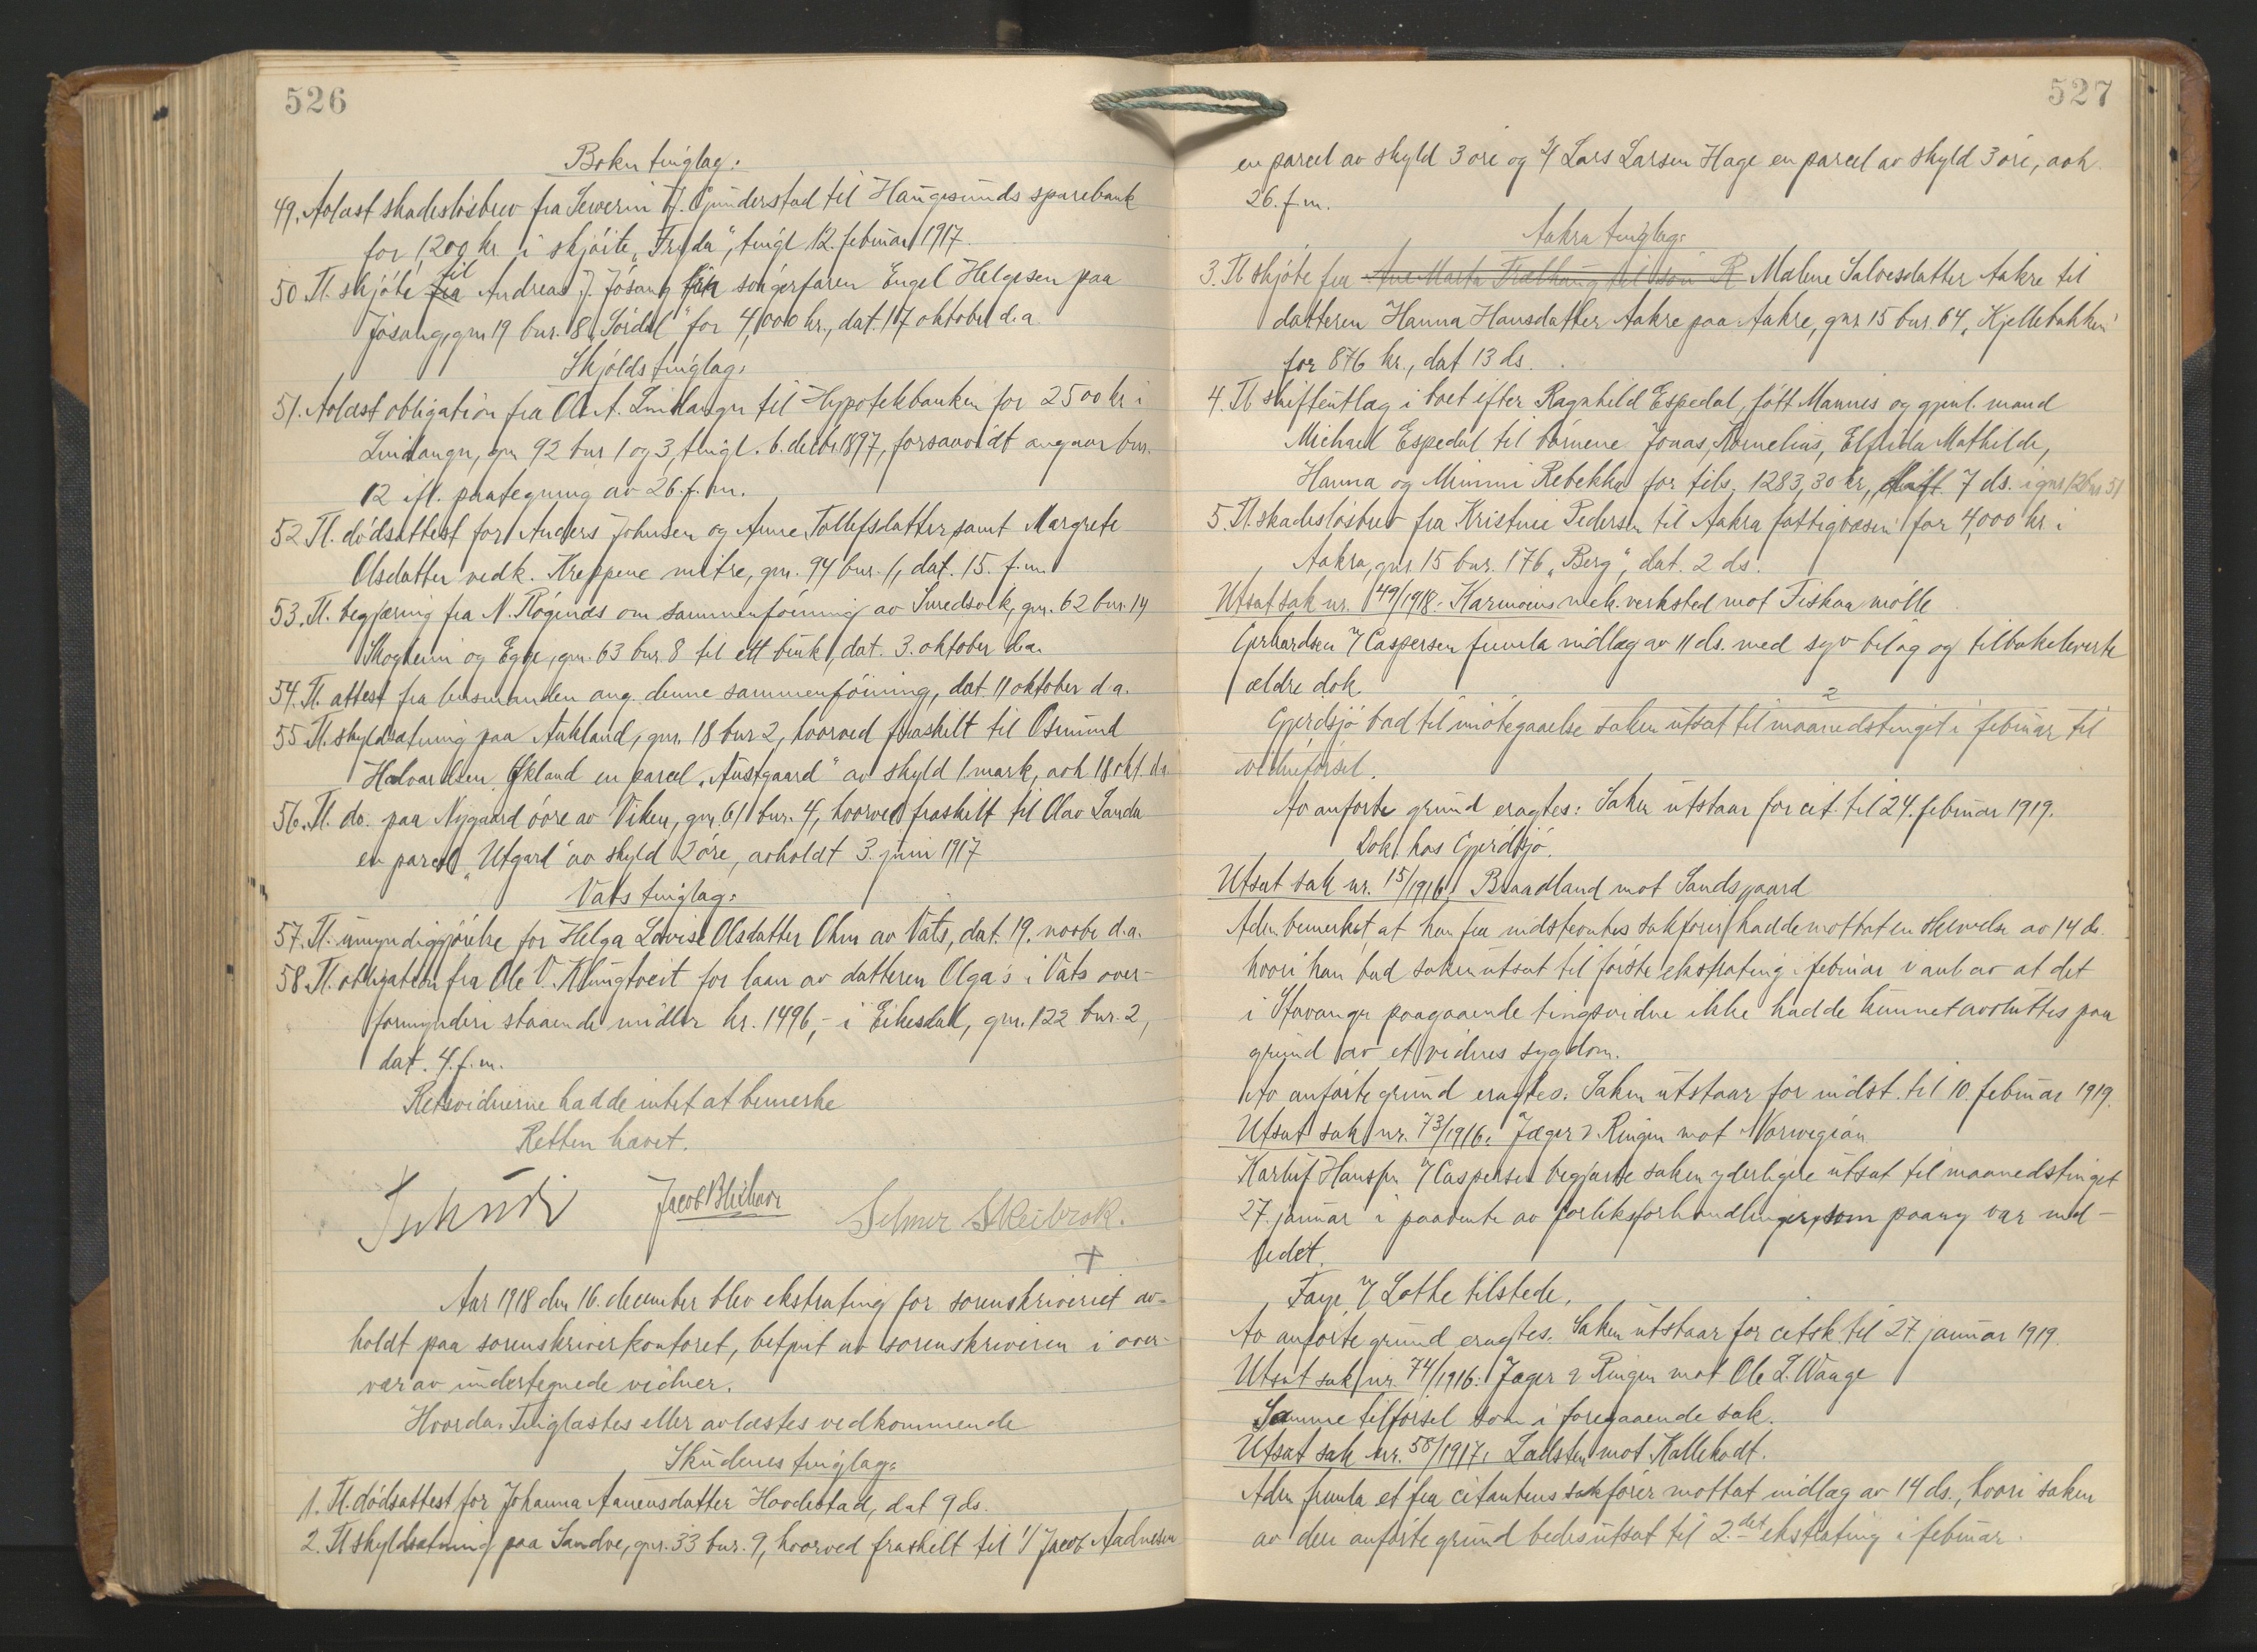 526
Bokn tinglag:
49. Avlæst skadesløsbrev fra Severin H. Gunderstad til Haugesunds sparebank
for 1200 kr. i skjøite "Fryda", tingl 12. februar 1917.
50 Tl. skjøte fra til Andreas J. Jøsang fra søngerfaren Engel Helgesen paa
Jøsang, gnr 19 bnr. 8 "Sørdal" for 4,000 kr., dat. 17 oktober d.a.
Skjolds tinglag:
51. Avlæst obligation fra Ol. A. Lindanger til Hypotekbanken for 2500 kr i
Lindanger, gnr 92 bnr 1 og 3, tingl. 6. decbr. 1897, forsaavidt angaar bnr.
12 ifl. paategning av 26. f.m.
52 Tl. dødsattest for Anders Johnsen og Anne Tollefsdatter samt Margrete
Olsdatter vedk. Kreppene nitre, gnr. 94 bnr. 1, dat. 15. f.m.
53. Tl. begjæring fra N. Røgenæs om sammenføining av Smedsvik, gnr. 62 bnr. 14
Skogheim og Egge, gnr. 63 bnr 8 til ett bruk, dat. 3. oktober d.a.
54. Tl. attest fra lensmanden ang. denne sammenføining, dat. 11 oktober d.a.
55 Tl. skyldsætning paa Aukland, gnr. 18 bnr 2, hvorved fraskilt til Osmund
Halvardsen Økland en parcel "Austgaard" av skyld 1 mark, avh 18 okt. d.a
56. Tl. do. paa Nygaard øvre av Viken, gnr. 61 bnr. 4, hvorved fraskilt til Olav Landa
en parcel "Utgard" av skyld 2 øre, avholdt 3. juni 1917
Vats tinglag:
57. Tl. umyndiggjørelse for Helga Lovise Olsdatter Ohm av Vats, dat. 19. novbr d.a.
58 Tl. obligation fra Ole V. Klungtveit for laan av datteren Olga's i Vats over-
formynderi staaende midler kr. 1496,- i Eikesdal, gnr. 122 bnr. 2,
dat. 4. f.m.
Retsvidnerne hadde intet at bemerke
Retten hævet.
Jacob Blikhavn Selmer Skeibrok.
Aar 1918 den 16. december blev ekstrating for sorenskriveriet av-
holdt paa sorenskriverkontoret, betjent av sorenskriveren i over-
vær av undertegnede vidner.
Hvorda: Tinglæstes eller avlæstes vedkommende
Skudenes tinglag:
1. Tl. dødsattest for Johanna Aanensdatter Hovdestad, dat 9 ds.
2. Tl skyldsætning paa Sandve, gnr. 33 bnr. 9, hvorved fraskilt til 1/ Jacob Aadnesen
527
en parcel av skyld 3 øre og 2/ Lars Larsen Hage en parcel av skyld 3 øre, avh.
26. f.m.
Aakra tinglag:
3. Tl skjøte fra Ane Marta Trælhaug til søn R Malene Salvesdatter Aakre til
datteren Hanna Hansdatter Aakre paa Aakre, gnr. 15 bnr. 64, "Kjellebakken"
for 876 kr., dat 13 ds.
4. Tl skifteutlæg i boet efter Ragnhild Espedal, født Mannes og gjenl. mand
Michael Espedal til børnene Jonas, Kornelius, Elfrida Mathilde,
Hanna og Mimmi Rebekka for tils. 1283,30 kr, 7 ds. i gnr 12 bnr 51
5. Tl. skadesløsbrev fra Kristine Pedersen til Aakra fattigvæsen for 4,000 kr i
Aakra, gnr. 15 bnr. 176 "Berg", dat. 2 ds.
Utsat sak nr. 49/1918. Karmøens mek. verksted mot Fiskaa mølle
Gerhardsen / Caspersen fremla indlæg av 11 ds. med syv bilag og tilbakeleverte
ældre dok.
2
Gjerdsjø bad til imøtegaaelse saken utsat til maanedstinget i februar til
vidneførsel.
Av anførte grund eragtes: Saken utstaar for cit. til 24. februar 1919.
Dok. hos Gjerdsjø.
Utsat sak nr. 15/1916. Braadland mot Sandsgaard
Adm. bemerket, at han fra indstevntes sakfører hadde mottat en skrivelse av 14 ds.
hvori han bad saken utsat til første ekstrating i februar i anl av at det
i Stavanger paagaaende tingsvidne ikke hadde kunnet avsluttes paa
grund av et vidnes sygdom.
Av anførte grund eragtes: Saken utstaar for indst. til 10. februar 1919.
Utsat sak nr. 73/1916. Jæger & Ringen mot Norwegian
Karluf Hanssen / Caspersen begjærte saken yderligere utsat til maanedstinget
27. januar i paavente av forliksforhandlinger, som paany var ind-
ledet.
Faye / Lothe tilstede.
Av anførte grund eragtes. Saken utstaar for citsk. til 27 januar 1919.
Utsat sak nr. 74/1916: Jæger & Ringen mot Ole L. Waage
Samme tilførsel som i foregaaende sak.
Utsat sak nr. 58/1917. Ladsten mot Kallekodt.
Adm fremla et fra citantens sakfører mottat indlæg av 14 ds., hvori saken
av deri anførte grund bedes utsat til 2.det ekstrating i februar.